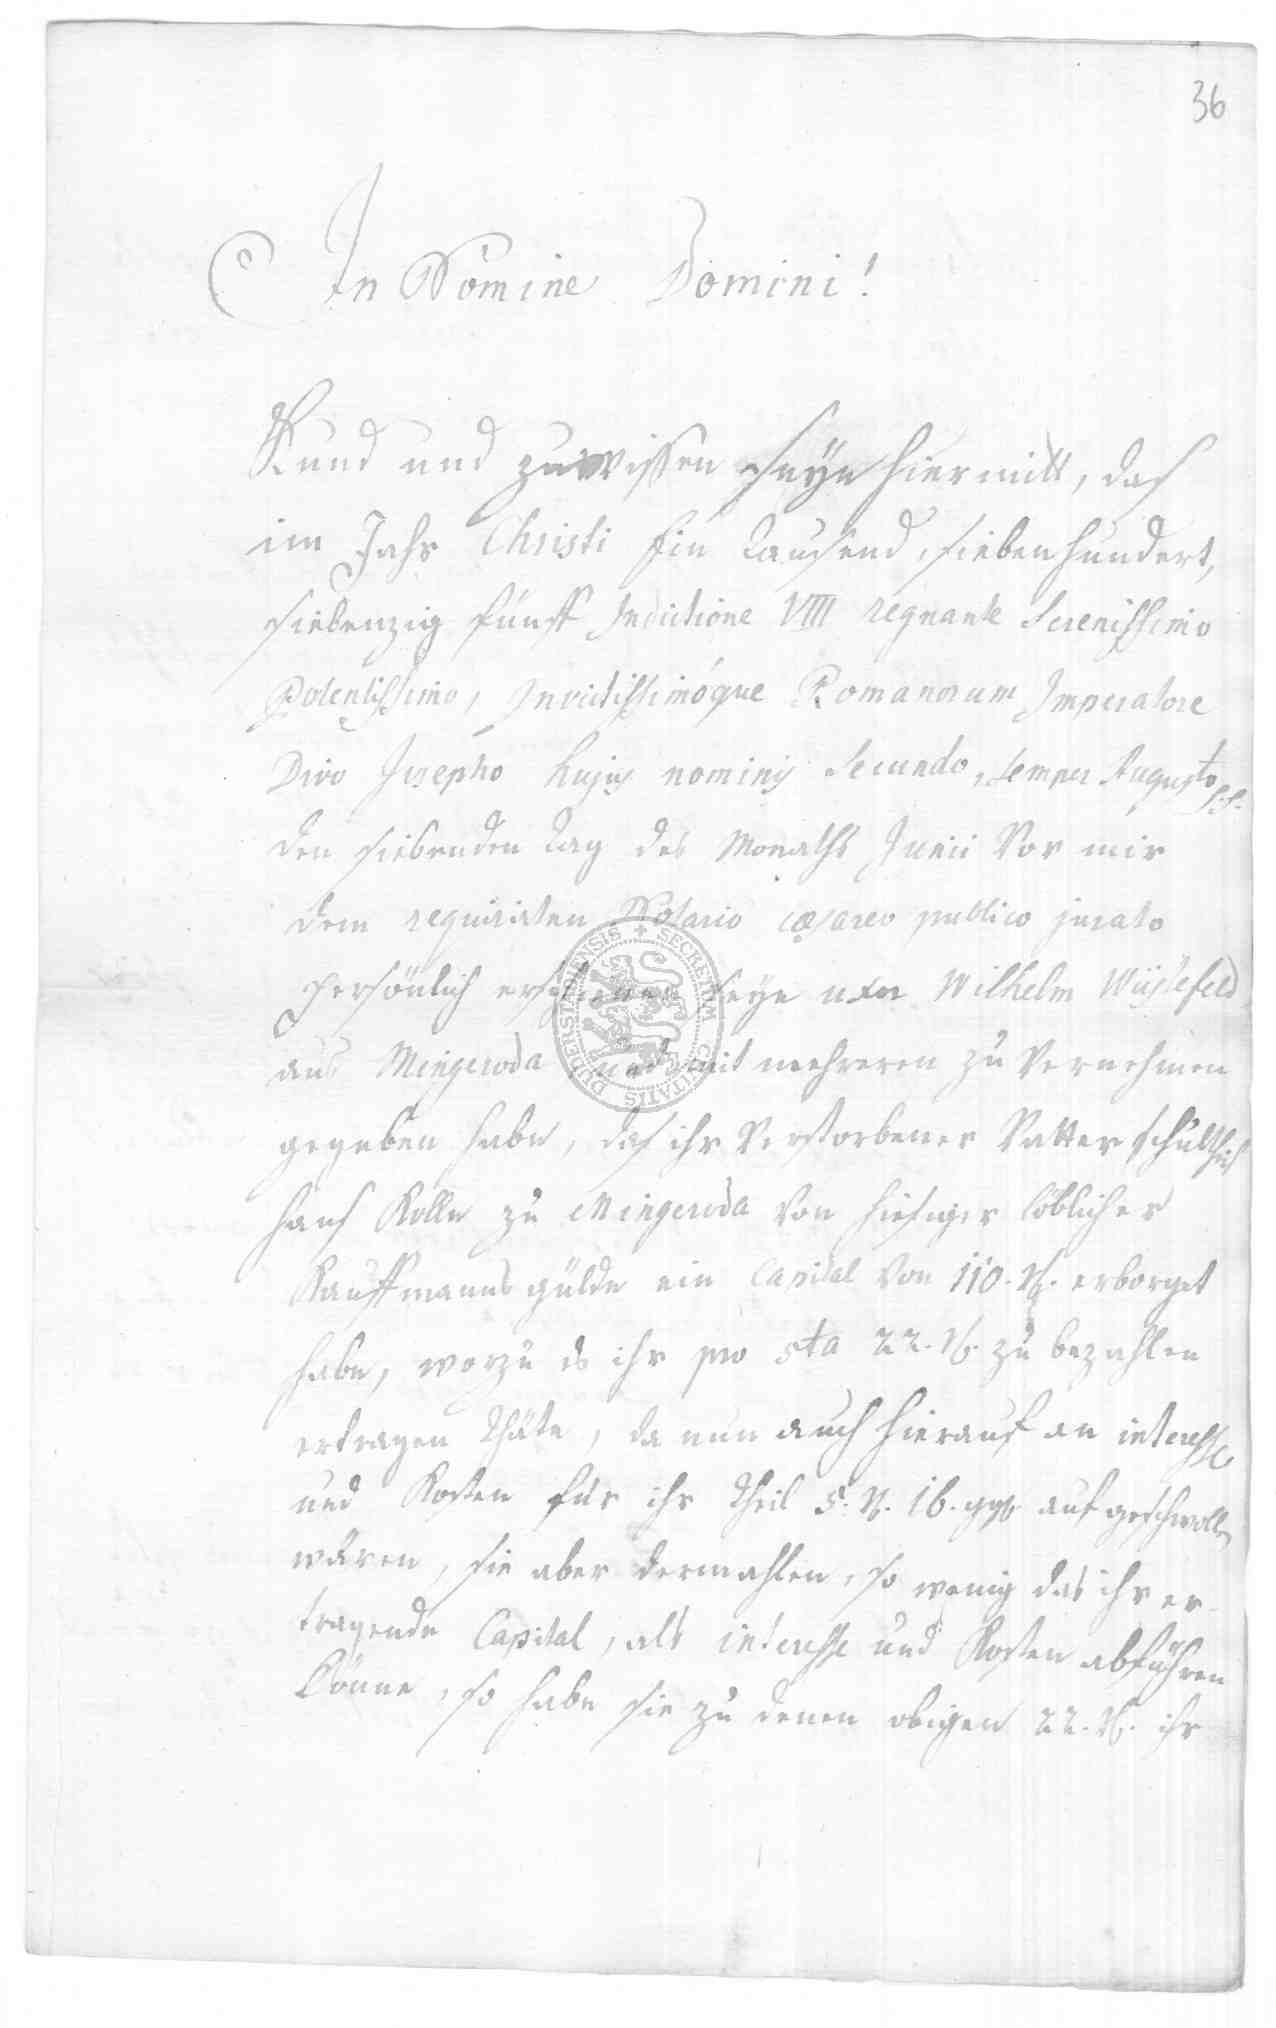 36
In Nomine Domini!
Kund und zuwissen seye hiermitt, das
im Jahr Christi Ein Tausend, siebenhundert,
siebenzig fünff Indictione VIII regnante Serenissimo
Potentissimo, Invictissimóque Romanorum Imperatore
Divo Josepho hujus nominis Secundo, semper Augusto
den siebenden Tag des Monaths Junii Vor mir
dem requirirten Notario cæsareo publico jurato
Persönlich erschienen seye uxor Wilhelm Wüstefeld
aus Mingeroda und mit mehreren zu Vernehmen
gegeben habe, das ihr Verstorbener Vatter Schultheis
Hans Kolle zu Mingeroda Von hiesiger löblicher
Kauffmanns gülde ein Capital Von 110. rh. erborget
habe, worzu es ihr pro 5ta 22. rh. zu bezahlen
ertragen thäte, da nun auch hierauf an interesse
und Kosten für ihr Theil 5. rh. 16. ggr auf geschwollen
wären, sie aber dermahlen, so wenig das ihr er-
tragende Capital, als interesse und Kosten abführen
könne, so habe sie zu denen obigen 22. rh. ihr
SECRETUM CIVITATIS DUDERSTADIENSIS